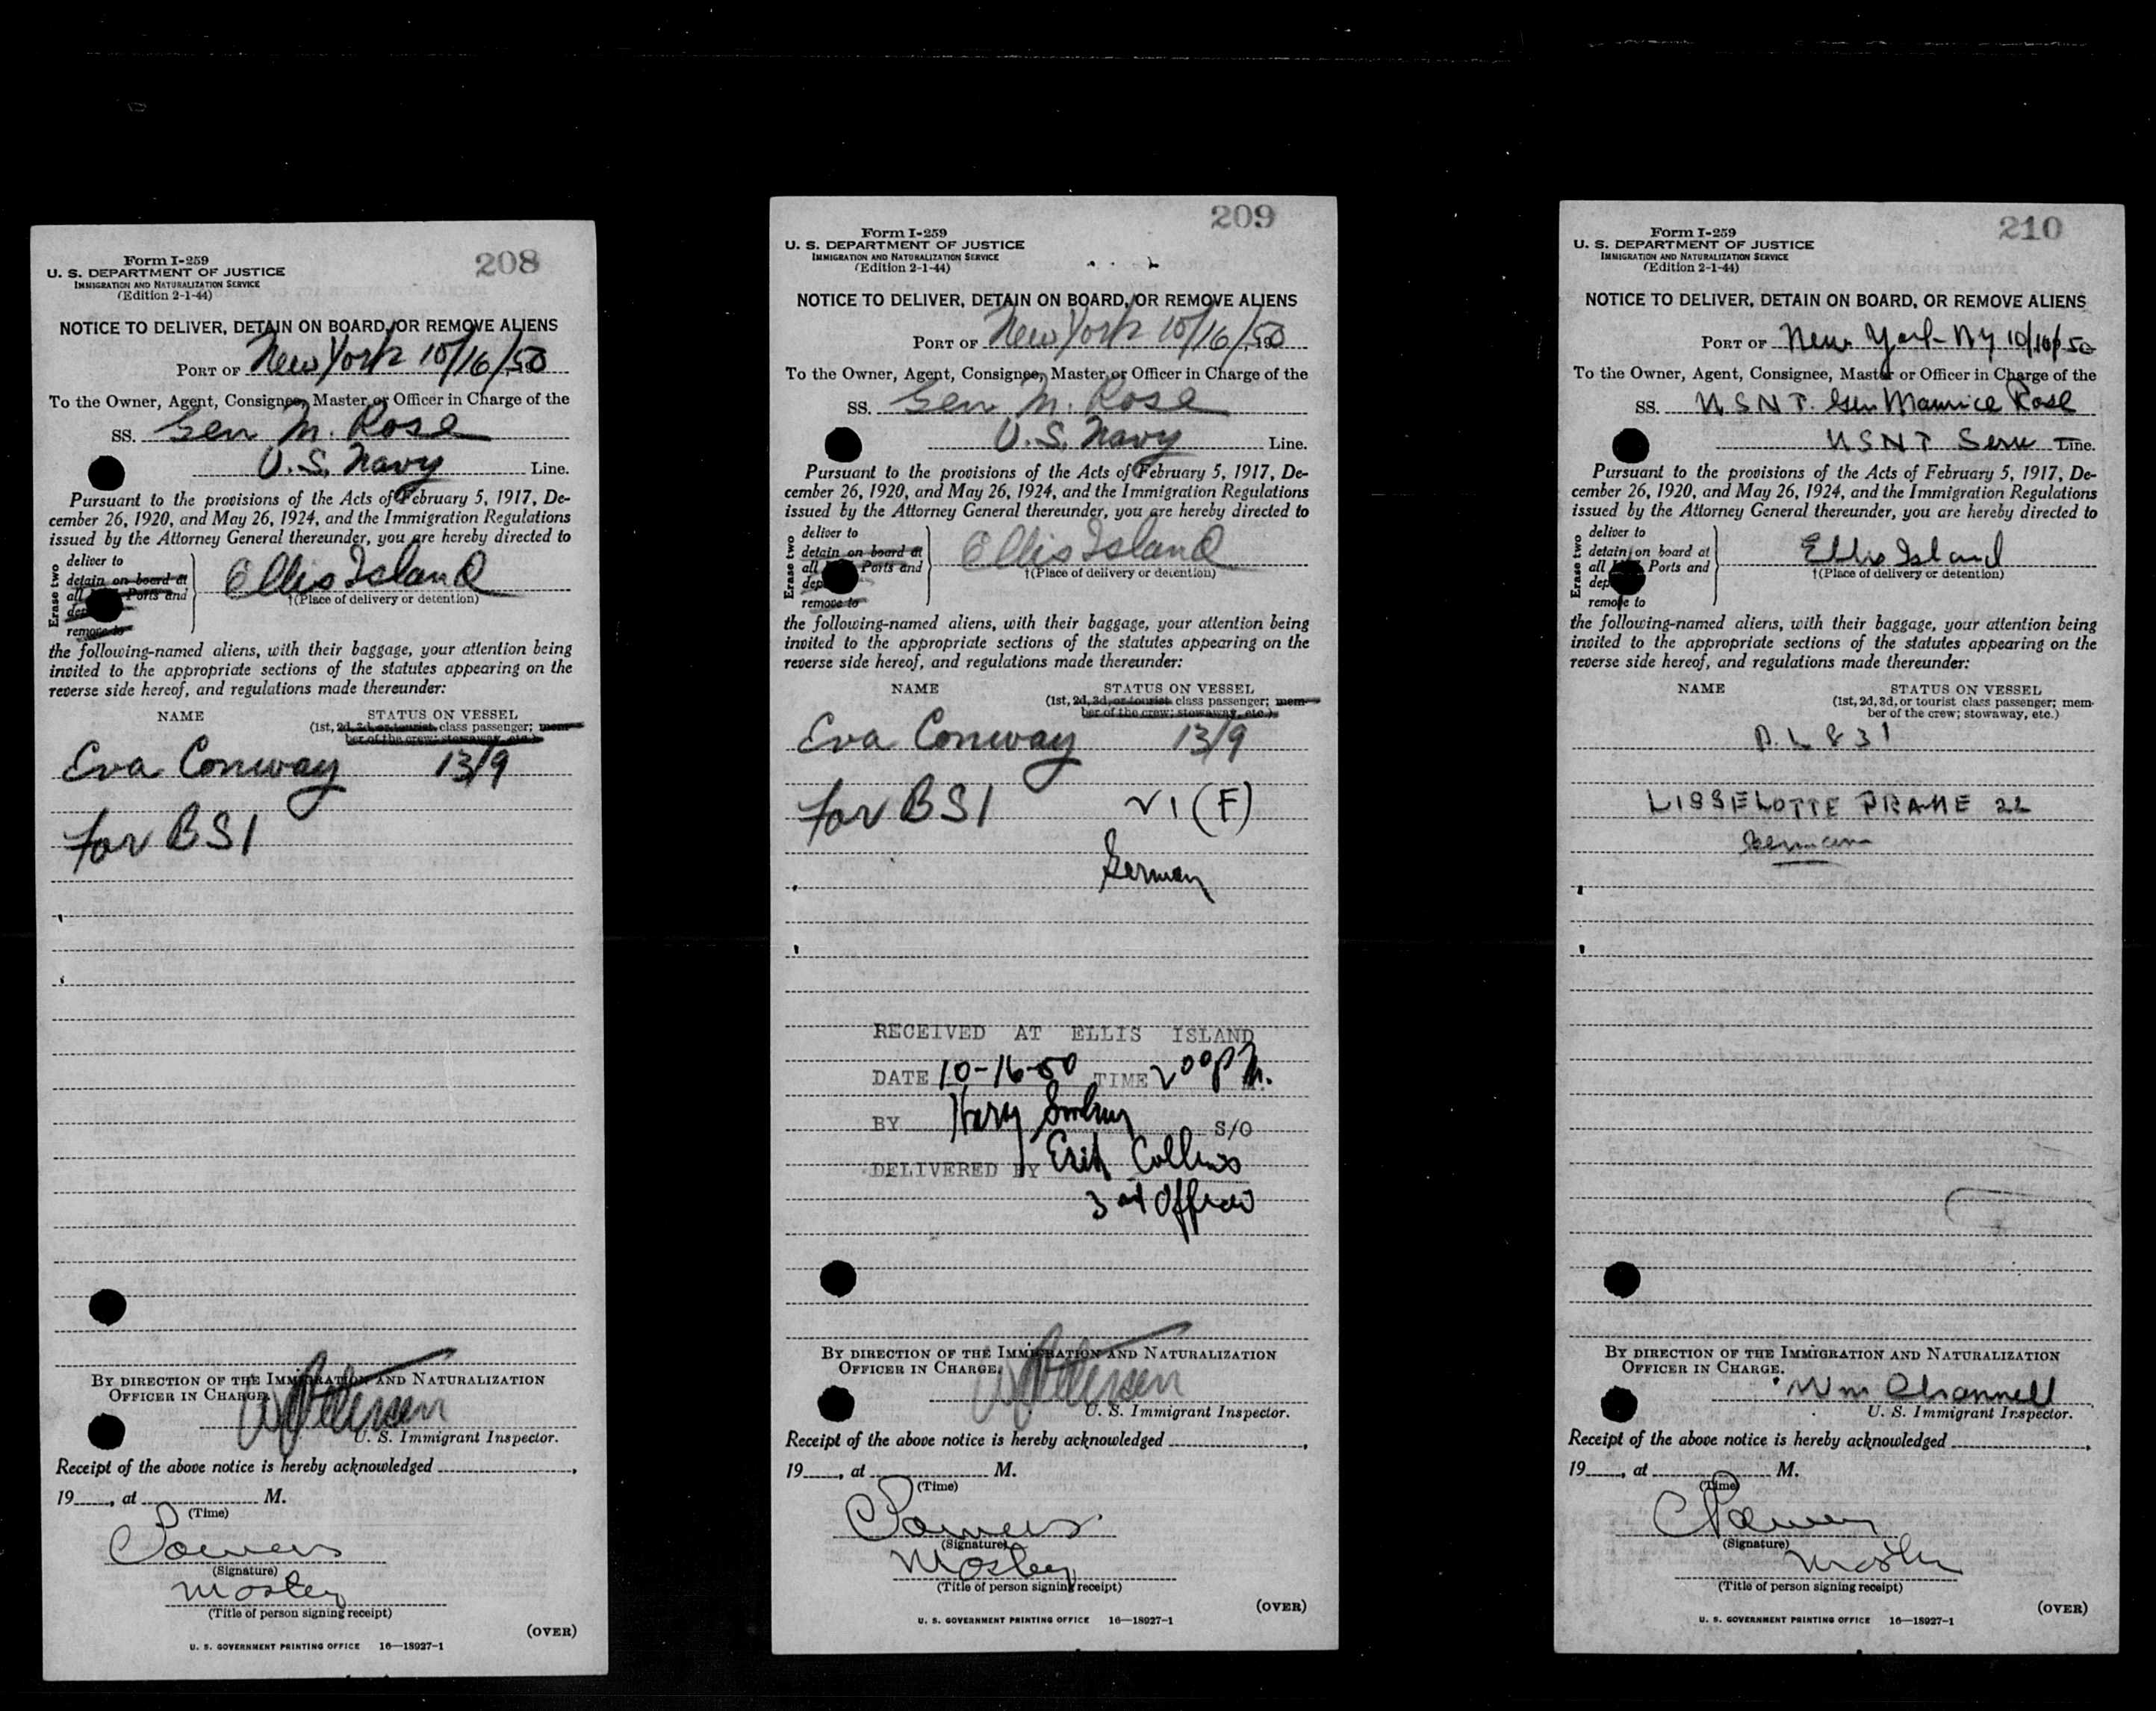 208
Form I-259
U. S. DEPARTMENT OF JUSTICE
IMMIGRATION AND NATURALIZATION SERVICE
(Edition 2-1-44)
NOTICE TO DELIVER, DETAIN ON BOARD, OR REMOVE ALIENS
PORT OF New York 10/16/50
To the Owner, Agent, Consignee, Master, or Officer in Charge of the
SS. Gen M. Rose
U.S. Navy Line.
Pursuant to the provisions of the Acts of February 5, 1917, De-
cember 26, 1920, and May 26, 1924, and the Immigration Regulations
issued by the Attorney General thereunder, you are hereby directed to
Erase two
deliver to
detain on board at
all Ports and
remove to
Ellis Island
†(Place of delivery or detention)
the following-named aliens, with their baggage, your attention being
invited to the appropriate sections of the statutes appearing on the
reverse side hereof, and regulations made thereunder:
NAME STATUS ON VESSEL
(1st, 2d, 3d, or tourist class passenger; mem-
ber of the crew; stowaway, etc.)
Eva Conway 13/9
for BSI
BY DIRECTION OF THE IMMIGRATION AND NATURALIZATION
OFFICER IN CHARGE.
U. S. Immigrant Inspector.
Receipt of the above notice is hereby acknowledged
19 , at M.
(Time)
(Signature)
Mosley
(Title of person signing receipt)
(OVER)
U. S. GOVERNMENT PRINTING OFFICE 16—18927-1
209
Form I-259
U. S. DEPARTMENT OF JUSTICE
IMMIGRATION AND NATURALIZATION SERVICE
(Edition 2-1-44)
NOTICE TO DELIVER, DETAIN ON BOARD, OR REMOVE ALIENS
PORT OF New York 10/16/50
To the Owner, Agent, Consignee, Master, or Officer in Charge of the
SS. Gen M. Rose
U.S. Navy Line.
Pursuant to the provisions of the Acts of February 5, 1917, De-
cember 26, 1920, and May 26, 1924, and the Immigration Regulations
issued by the Attorney General thereunder, you are hereby directed to
Erase two
deliver to
detain on board at
all Ports and
remove to
Ellis Island
†(Place of delivery or detention)
the following-named aliens, with their baggage, your attention being
invited to the appropriate sections of the statutes appearing on the
reverse side hereof, and regulations made thereunder:
NAME STATUS ON VESSEL
(1st, 2d, 3d, or tourist class passenger; mem-
ber of the crew; stowaway, etc.)
Eva Conway 13/9
for BSI 21 (F)
German
RECEIVED AT ELLIS ISLAND
DATE 10-16-50 TIME 2 00 P M.
BY S/O
DELIVERED BY Collins
3rd Officer
BY DIRECTION OF THE IMMIGRATION AND NATURALIZATION
OFFICER IN CHARGE.
U. S. Immigrant Inspector.
Receipt of the above notice is hereby acknowledged
19 , at M.
(Time)
(Signature)
Mosley
(Title of person signing receipt)
(OVER)
U. S. GOVERNMENT PRINTING OFFICE 16—18927-1
210
Form I-259
U. S. DEPARTMENT OF JUSTICE
IMMIGRATION AND NATURALIZATION SERVICE
(Edition 2-1-44)
NOTICE TO DELIVER, DETAIN ON BOARD, OR REMOVE ALIENS
PORT OF New York NY 10/16/50
To the Owner, Agent, Consignee, Master or Officer in Charge of the
SS. USNT. Gen Maurice Rose
USNT Serv Line.
Pursuant to the provisions of the Acts of February 5, 1917, De-
cember 26, 1920, and May 26, 1924, and the Immigration Regulations
issued by the Attorney General thereunder, you are hereby directed to
Erase two
deliver to
detain on board at
all Ports and
remove to
Ellis Island
†(Place of delivery or detention)
the following-named aliens, with their baggage, your attention being
invited to the appropriate sections of the statutes appearing on the
reverse side hereof, and regulations made thereunder:
NAME STATUS ON VESSEL
(1st, 2d, 3d, or tourist class passenger; mem-
ber of the crew; stowaway, etc.)
P. L 831
LISSELOTTE PRAHE 22
German
BY DIRECTION OF THE IMMIGRATION AND NATURALIZATION
OFFICER IN CHARGE.
Wm Channell
U. S. Immigrant Inspector.
Receipt of the above notice is hereby acknowledged
19 , at M.
(Time)
(Signature)
(Title of person signing receipt)
(OVER)
U. S. GOVERNMENT PRINTING OFFICE 16—18927-1